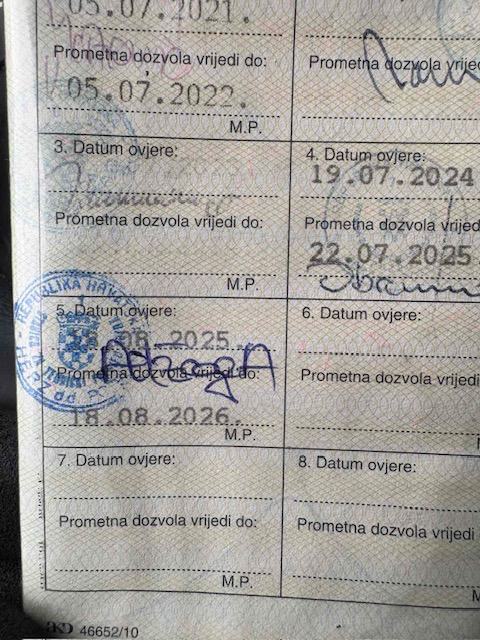 05.07.2021.
Prometna dozvola vrijedi do:
05.07.2022.
M.P.
Prometna dozvola vrije
3. Datum ovjere:
Prometna dozvola vrijedi do:
M.P.
4. Datum ovjere:
19.07.2024
Prometna dozvola vrijedi
22.07.2025
5. Datum ovjere:
08.2025.
Prometna dozvola vrijedi do:
18.08.2026.
M.P.
REPUBLIKA HRVATSKA
6. Datum ovjere:
Prometna dozvola vrijedi
7. Datum ovjere:
Prometna dozvola vrijedi do:
M.P.
8. Datum ovjere:
Prometna dozvola vrijedi
AKD 46652/10